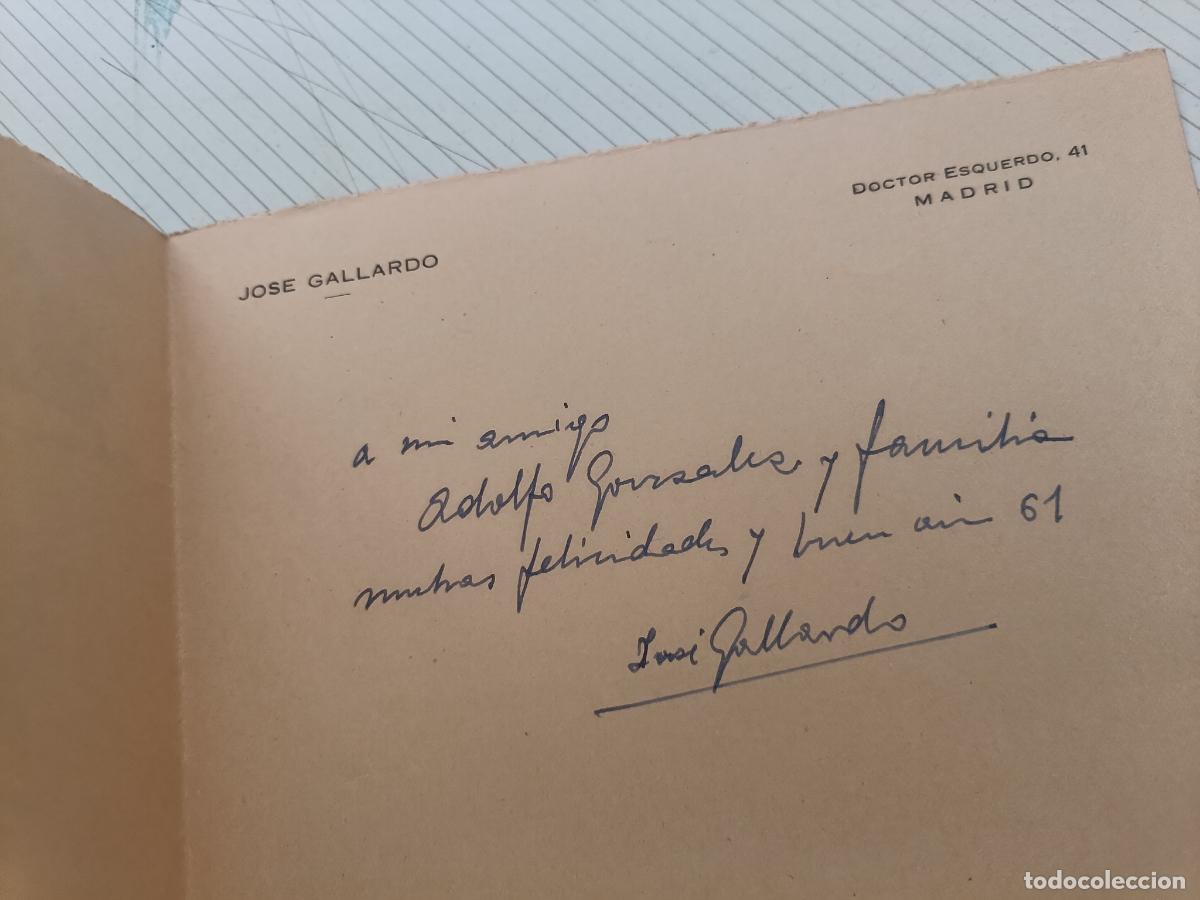 JOSE GALLARDO
DOCTOR ESQUERDO, 41
MADRID
a mi amigo
Adolfo Gonzalez y familia
muchas felicidades y buen año 61
José Gallardo
todocoleccion